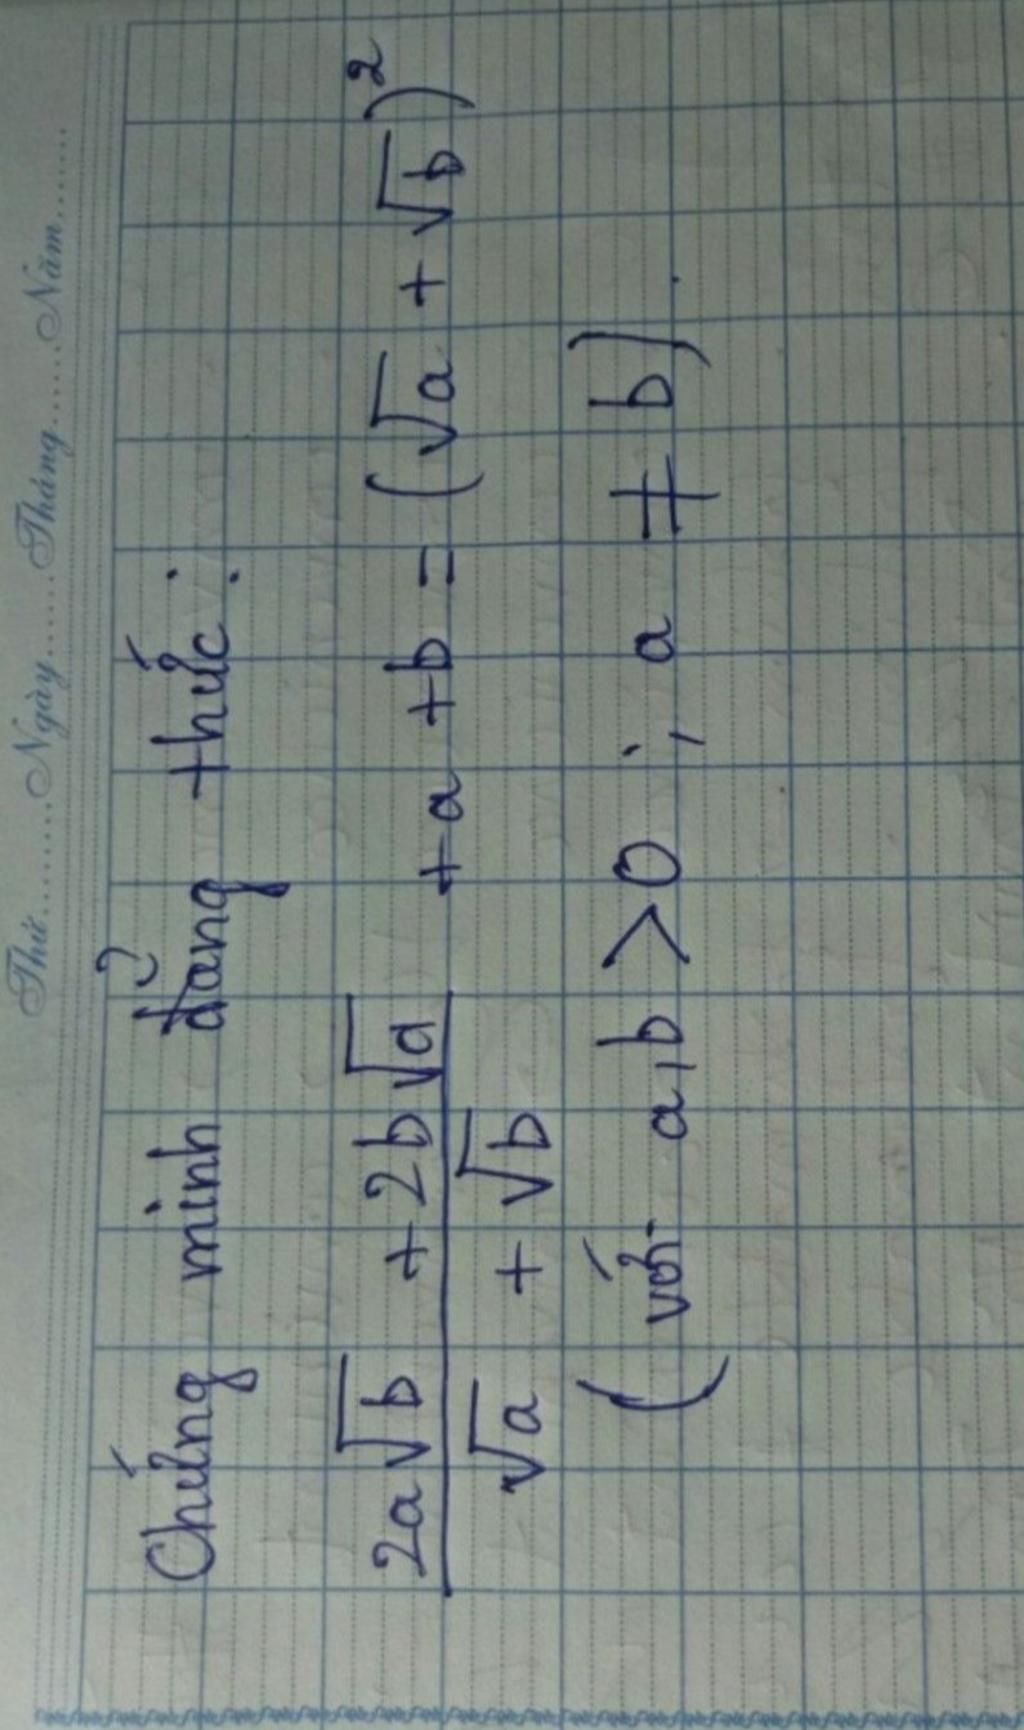 Thứ.........Ngày.......Tháng.......Năm.......
Chứng minh đẳng thức :
2a√b + 2b√a
+ a + b = (√a + √b)²
√a + √b
( với a,b > 0 ; a ≠ b)